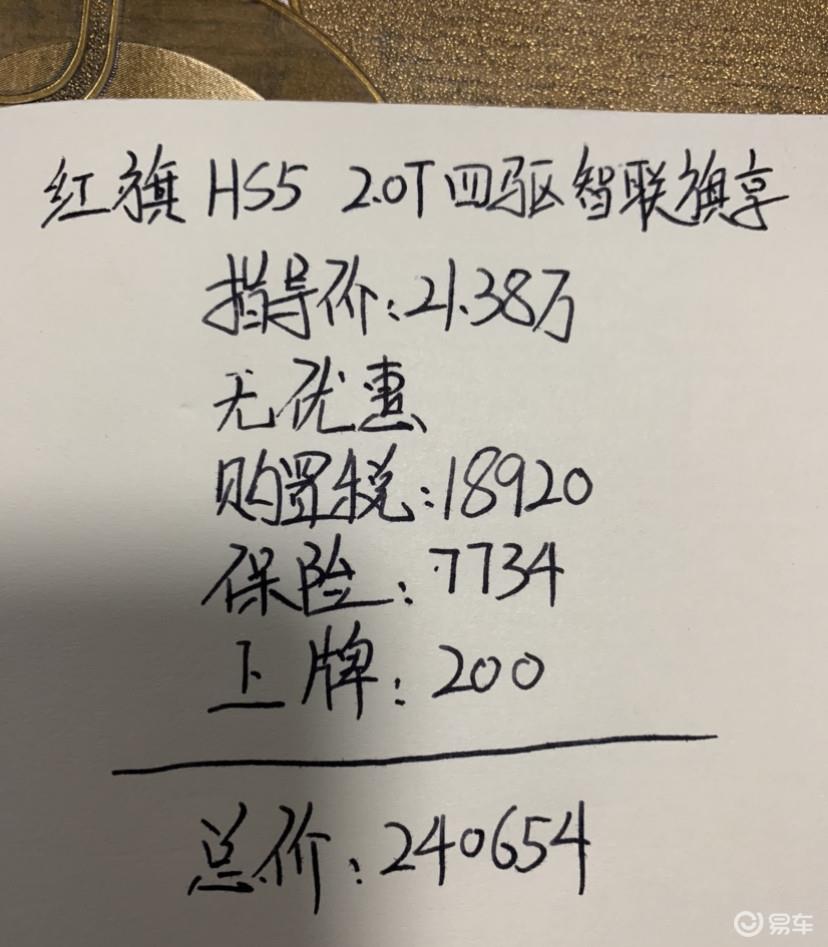 红旗 HS5 2.0T四驱智联旗享
指导价:21.38万
无优惠
购置税:18920
保险:7734
上牌:200
总价:240654
易车